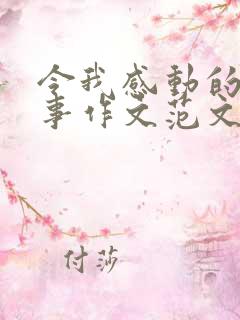 令我感動的
事作文范文
付莎